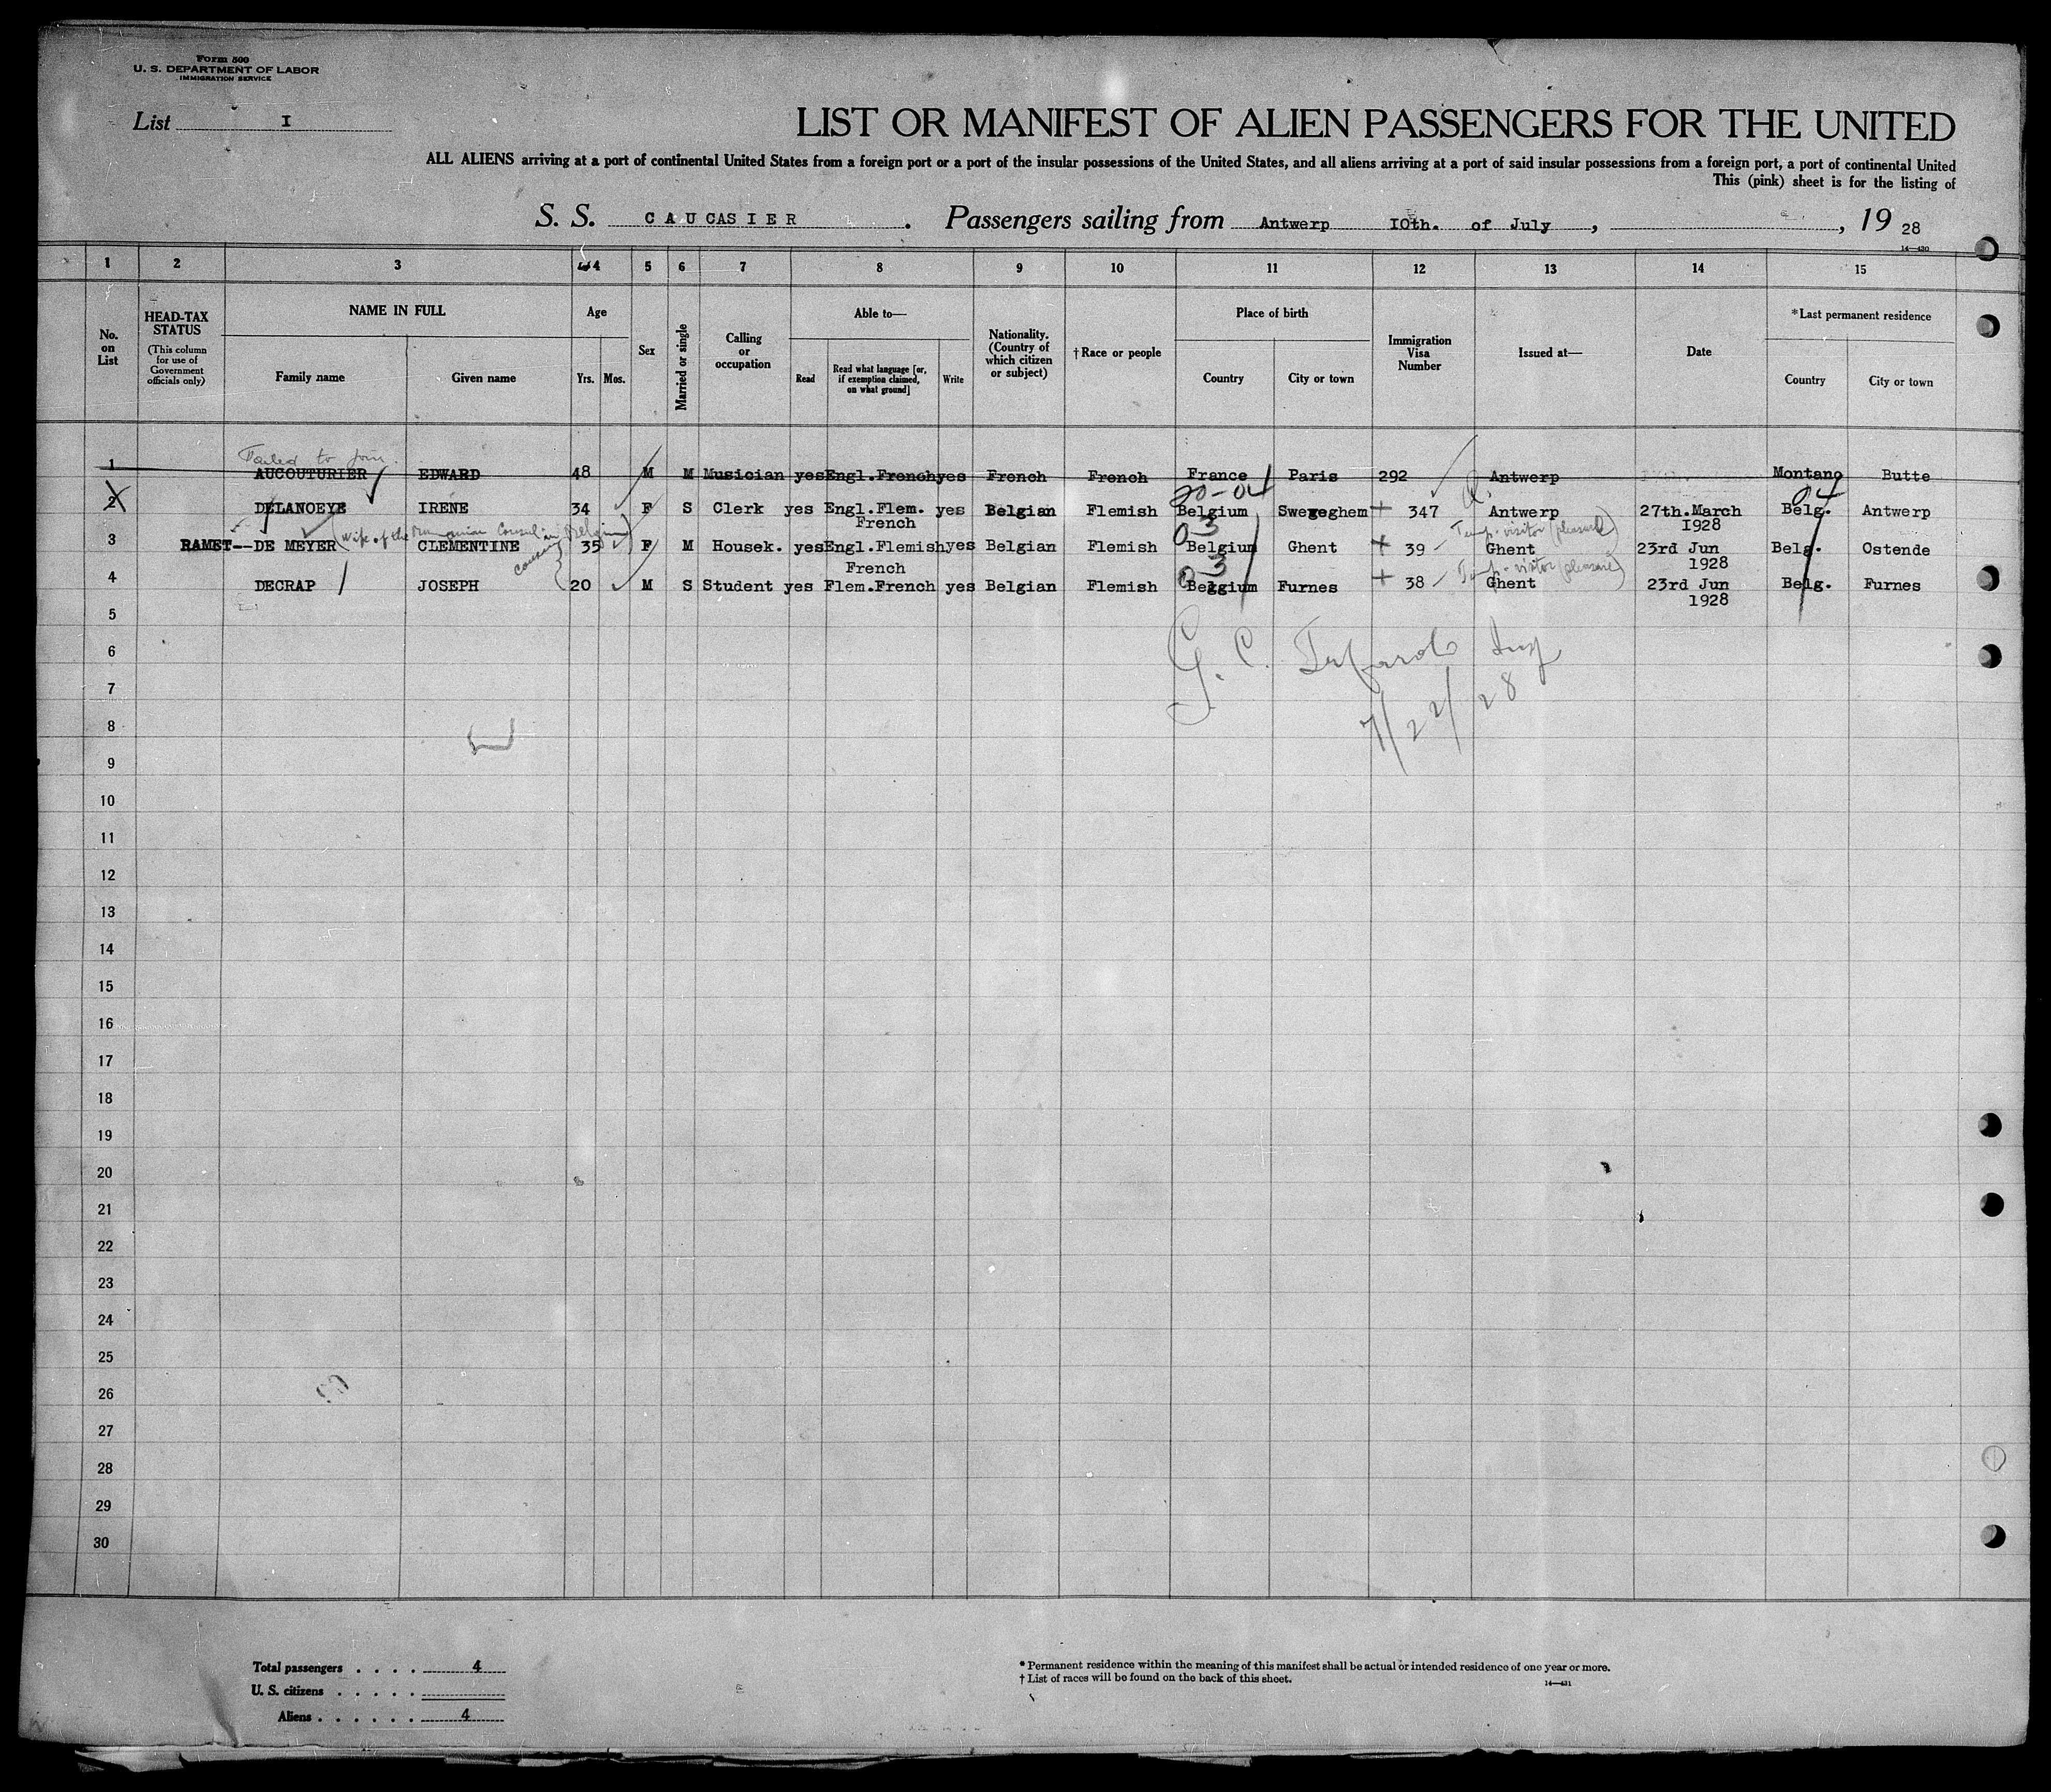 Form 500
U. S. DEPARTMENT OF LABOR
IMMIGRATION SERVICE
List I
LIST OR MANIFEST OF ALIEN PASSENGERS FOR THE UNITED
ALL ALIENS arriving at a port of continental United States from a foreign port or a port of the insular possessions of the United States, and all aliens arriving at a port of said insular possessions from a foreign port, a port of continental United
This (pink) sheet is for the listing of
S. S. CAUCASIER . Passengers sailing from Antwerp IOth. of July , , 19 28
14—430
1 2 3 4 5 6 7 8 9 10 11 12 13 14 15
No. on List
HEAD-TAX STATUS
(This column for use of Government officials only)
NAME IN FULL
Family name
Given name
Age
Yrs.
Mos.
Sex
Married or single
Calling or occupation
Able to—
Read
Read what language [or, if exemption claimed, on what ground]
Write
Nationality. (Country of which citizen or subject)
†Race or people
Place of birth
Country
City or town
Immigration Visa Number
Issued at—
Date
*Last permanent residence
Country
City or town
Failed to join.
1 AUCOUTURIER EDWARD 48 M M Musician yes Engl.French yes French French France Paris 292 Antwerp Montano Butte
20-04 04
2 DELANOEYE IRENE 34 F S Clerk yes Engl.Flem. yes Belgian Flemish Belgium Sweveghem 347 Antwerp 27th.March Belg. Antwerp
French I928
(Wife of the Rumanian Consul in Belgium) 03 Temp. visitor (pleasure)
3 RAMET--DE MEYER CLEMENTINE 35 F M Housek. yes Engl.Flemish yes Belgian Flemish Belgium Ghent 39 Ghent 23rd Jun Belg. Ostende
French 1928
cousin 03 Temp. visitor (pleasure)
4 DECRAP JOSEPH 20 M S Student yes Flem.French yes Belgian Flemish Beggium Furnes 38 Ghent 23rd Jun Belg. Furnes
1928
5
6
G. C.
7
7/22/28
8
9
10
11
12
13
14
15
16
17
18
19
20
21
22
23
24
25
26
27
28
29
30
Total passengers . . . . 4
U. S. citizens . . . . .
Aliens . . . . . . 4
* Permanent residence within the meaning of this manifest shall be actual or intended residence of one year or more.
† List of races will be found on the back of this sheet.
14—431